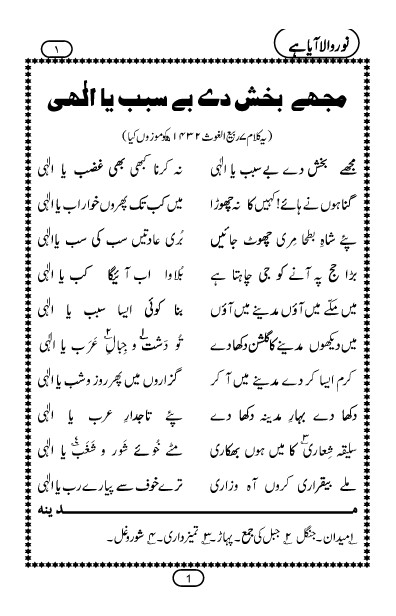 نور والا آیا ہے
۱
مجھے بخش دے بے سبب یا الٰہی
(یہ کلام ۷ ربیع الغوث ۱۴۳۲ھ کو موزوں کیا)
مجھے بخش دے بے سبب یا الٰہی نہ کرنا کبھی بھی غضب یا الٰہی
گناہوں نے ہائے! کہیں کا نہ چھوڑا میں کب تک پھروں خوار اب یا الٰہی
پئے شاہِ بطحا مِری چھوٹ جائیں بُری عادتیں سب کی سب یا الٰہی
بڑا حج پہ آنے کو جی چاہتا ہے بُلاوا اب آئیگا کب یا الٰہی
میں مکّے میں آؤں مدینے میں آؤں بنا کوئی ایسا سبب یا الٰہی
میں دیکھوں مدینے کا گلشن دکھا دے تُو دَشت۱ و جِبالِ۲ عَرَب یا الٰہی
کرم ایسا کر دے مدینے میں آ کر گزاروں میں پھر روز و شب یا الٰہی
دکھا دے بہارِ مدینہ دکھا دے پئے تاجدارِ عرب یا الٰہی
سلیقہ شِعاری۳ کا میں ہوں بھکاری مٹے خُوئے شور و شَغَب۴ یا الٰہی
ملے بیقراری کروں آہ وزاری ترے خوف سے پیارے رب یا الٰہی
مدینه
۱ میدان۔جنگل ۲ جبل کی جمع۔ پہاڑ۔ ۳ تمیز داری۔ ۴ شور و غل۔
1